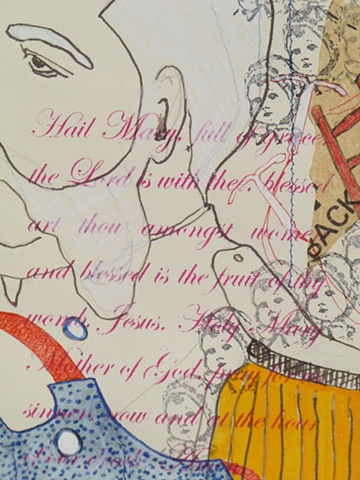 Hail Mary, full of grace,
the Lord is with thee, blessed
art thou amongst women
and blessed is the fruit of thy
womb, Jesus. Holy Mary
Mother of God, pray for us
sinners, now and at the hour
of our death. Amen
PACK